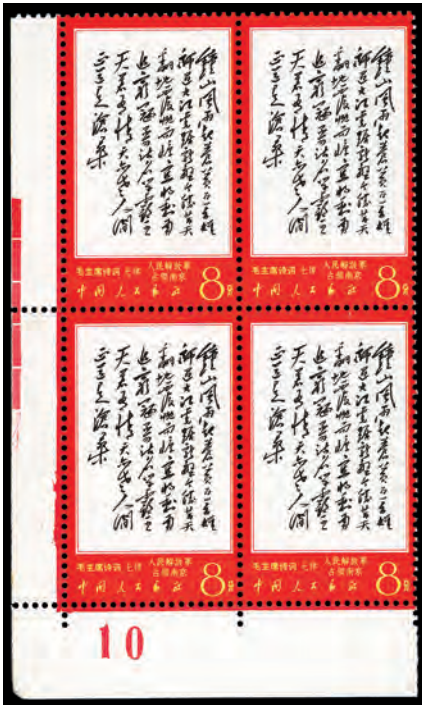 鐘山風雨起蒼黃百萬雄
師過大江虎踞龍盤今勝昔天
翻地覆慨而慷宜將剩勇
追窮寇不可沽名學霸王
天若有情天亦老人間
正道是滄桑
毛主席诗词 七律 人民解放军
占领南京
中国人民邮政 8分
鐘山風雨起蒼黃百萬雄
師過大江虎踞龍盤今勝昔天
翻地覆慨而慷宜將剩勇
追窮寇不可沽名學霸王
天若有情天亦老人間
正道是滄桑
毛主席诗词 七律 人民解放军
占领南京
中国人民邮政 8分
鐘山風雨起蒼黃百萬雄
師過大江虎踞龍盤今勝昔天
翻地覆慨而慷宜將剩勇
追窮寇不可沽名學霸王
天若有情天亦老人間
正道是滄桑
毛主席诗词 七律 人民解放军
占领南京
中国人民邮政 8分
鐘山風雨起蒼黃百萬雄
師過大江虎踞龍盤今勝昔天
翻地覆慨而慷宜將剩勇
追窮寇不可沽名學霸王
天若有情天亦老人間
正道是滄桑
毛主席诗词 七律 人民解放军
占领南京
中国人民邮政 8分
10